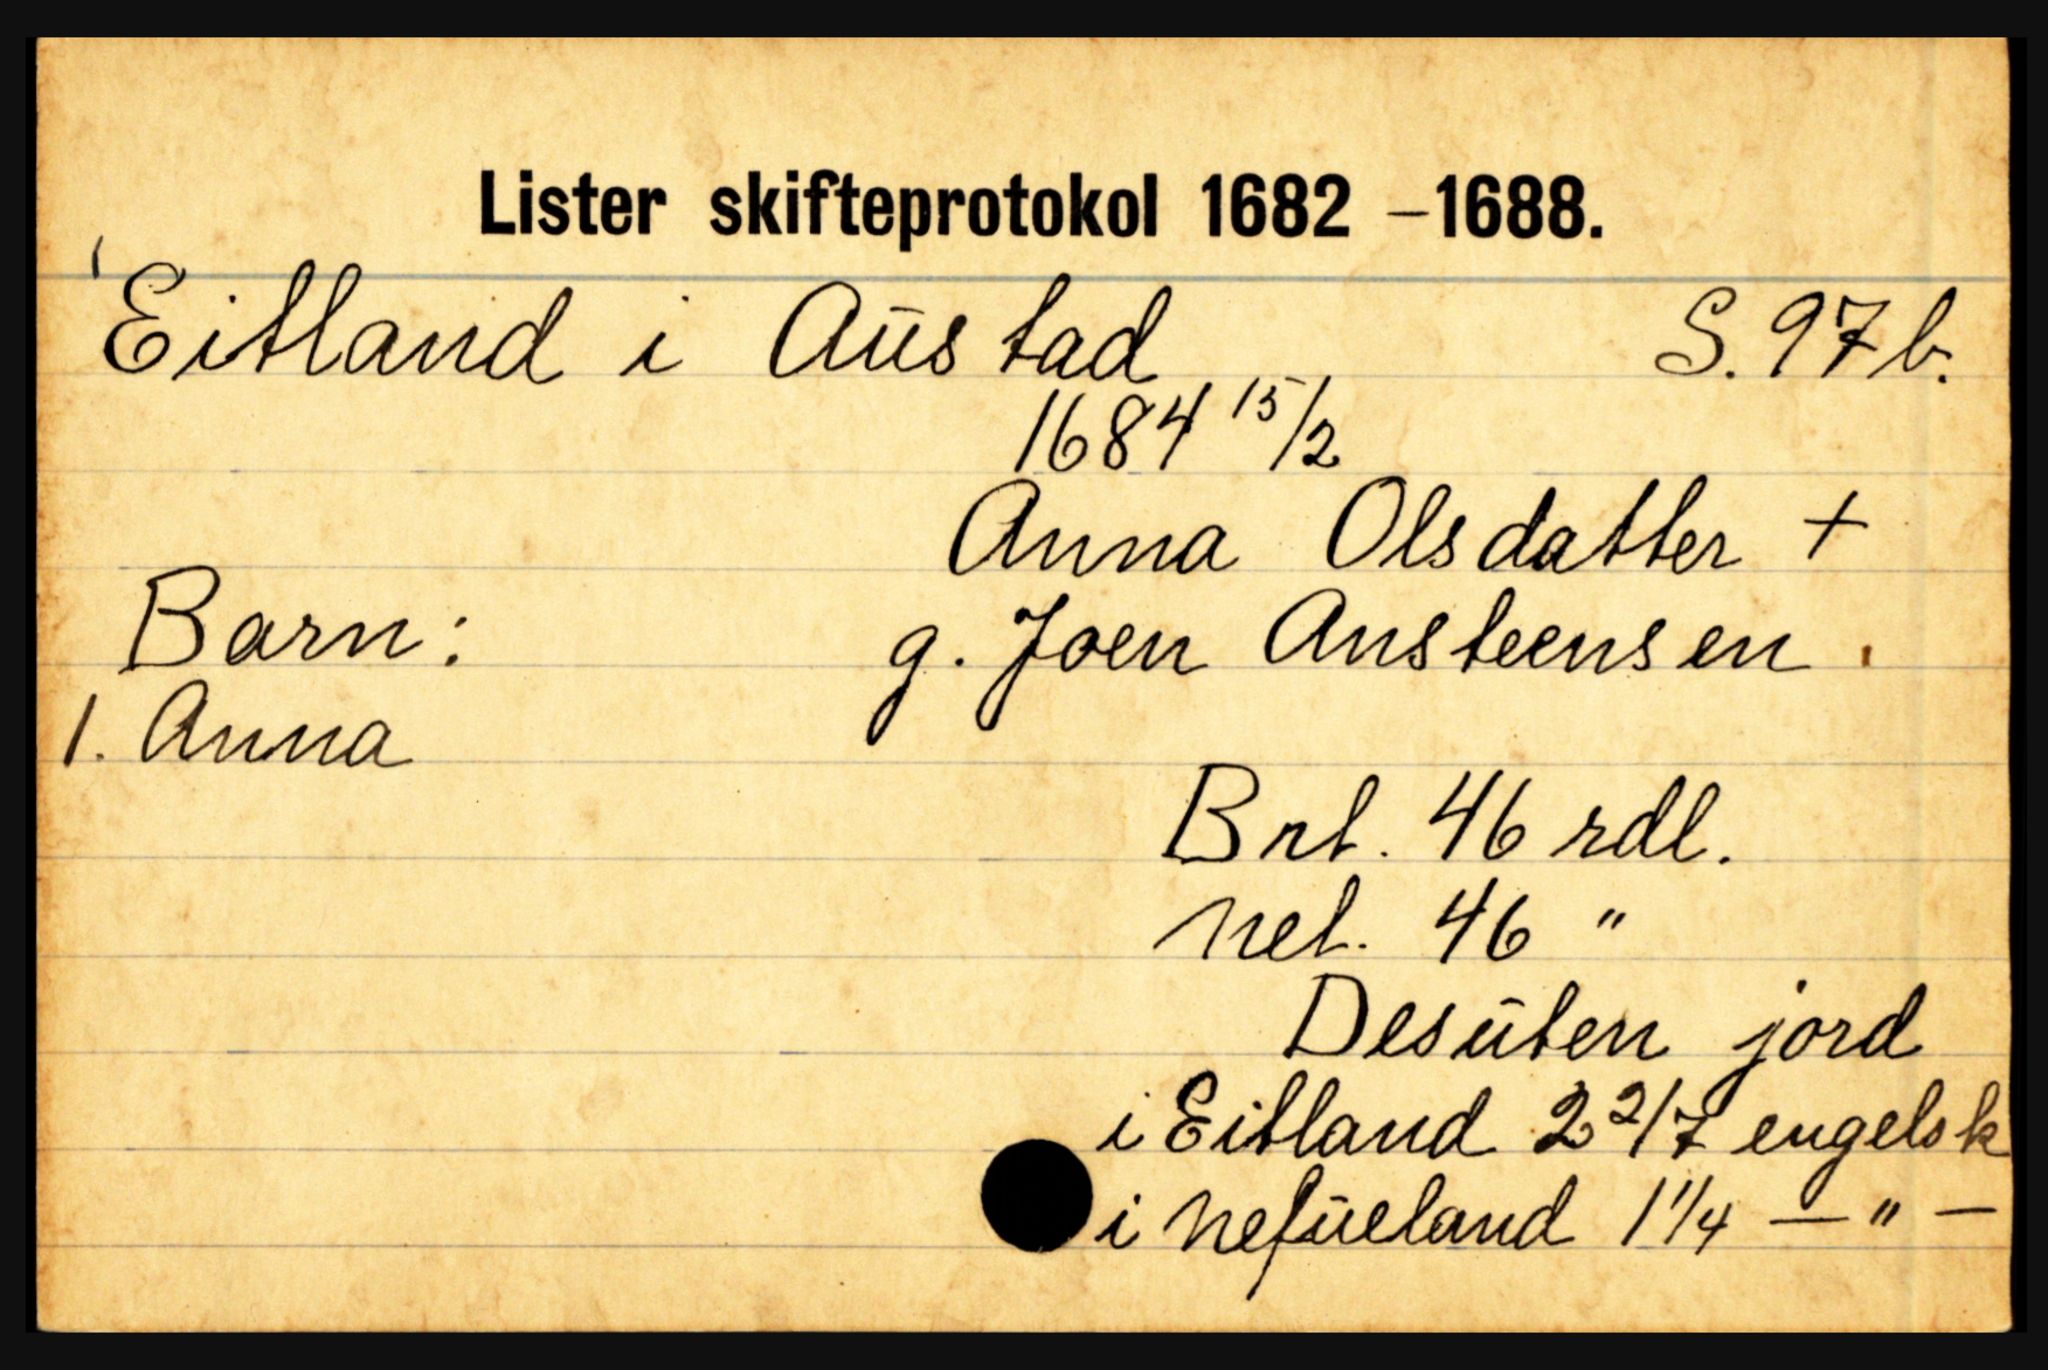 Lister skifteprotokol 1682 – 1688.
Eitland i Austad S. 97 b.
1684 15/2
Anna Olsdatter +
Barn: g. Joen Ansteensen.
1. Anna
Brt. 46 rdl.
net. 46 "
Desuten jord
i Eitland 2 2/7 engelsk
i nefueland 1 1/4 — " —